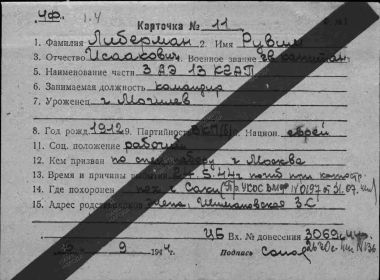 УФ. 1.4
Карточка № 11
1. Фамилия Либерман 2. Имя Рувим
3. Отчество Исаакович Военное звание гв капитан
5. Наименование части 3 АЭ 13 КЗАП
6. Занимаемая должность командир
7. Уроженец г. Могилев
8. Год рожд. 1912 9. Партийность ВКП(б) Национ. еврей
11. Соц. положение рабочий
12. Кем призван по спец. набору г Москва
13. Время и причины 24.5.44г погиб при катастр.
14. Где похоронен пох. г Саки (Пр УКОС ВМФ № 0197 от 31.07.44)
15. Адрес родственников жена, Шимановская З С
9 1944 г. ЦБ Вх. № донесения 30696
Подпись